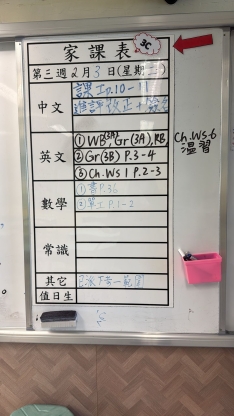 家課表
3C
第三週 2月3日(星期三)
中文
課工p.10-
進評改正+
英文
① WB(3A), Gr(3A), RB
② Gr(3B) P.3-4
③ Ch.Ws 1 P.2-3
數學
① 書P.36
② 單工 P.1-2
常識
其它
值日生
Ch.Ws-6
溫習